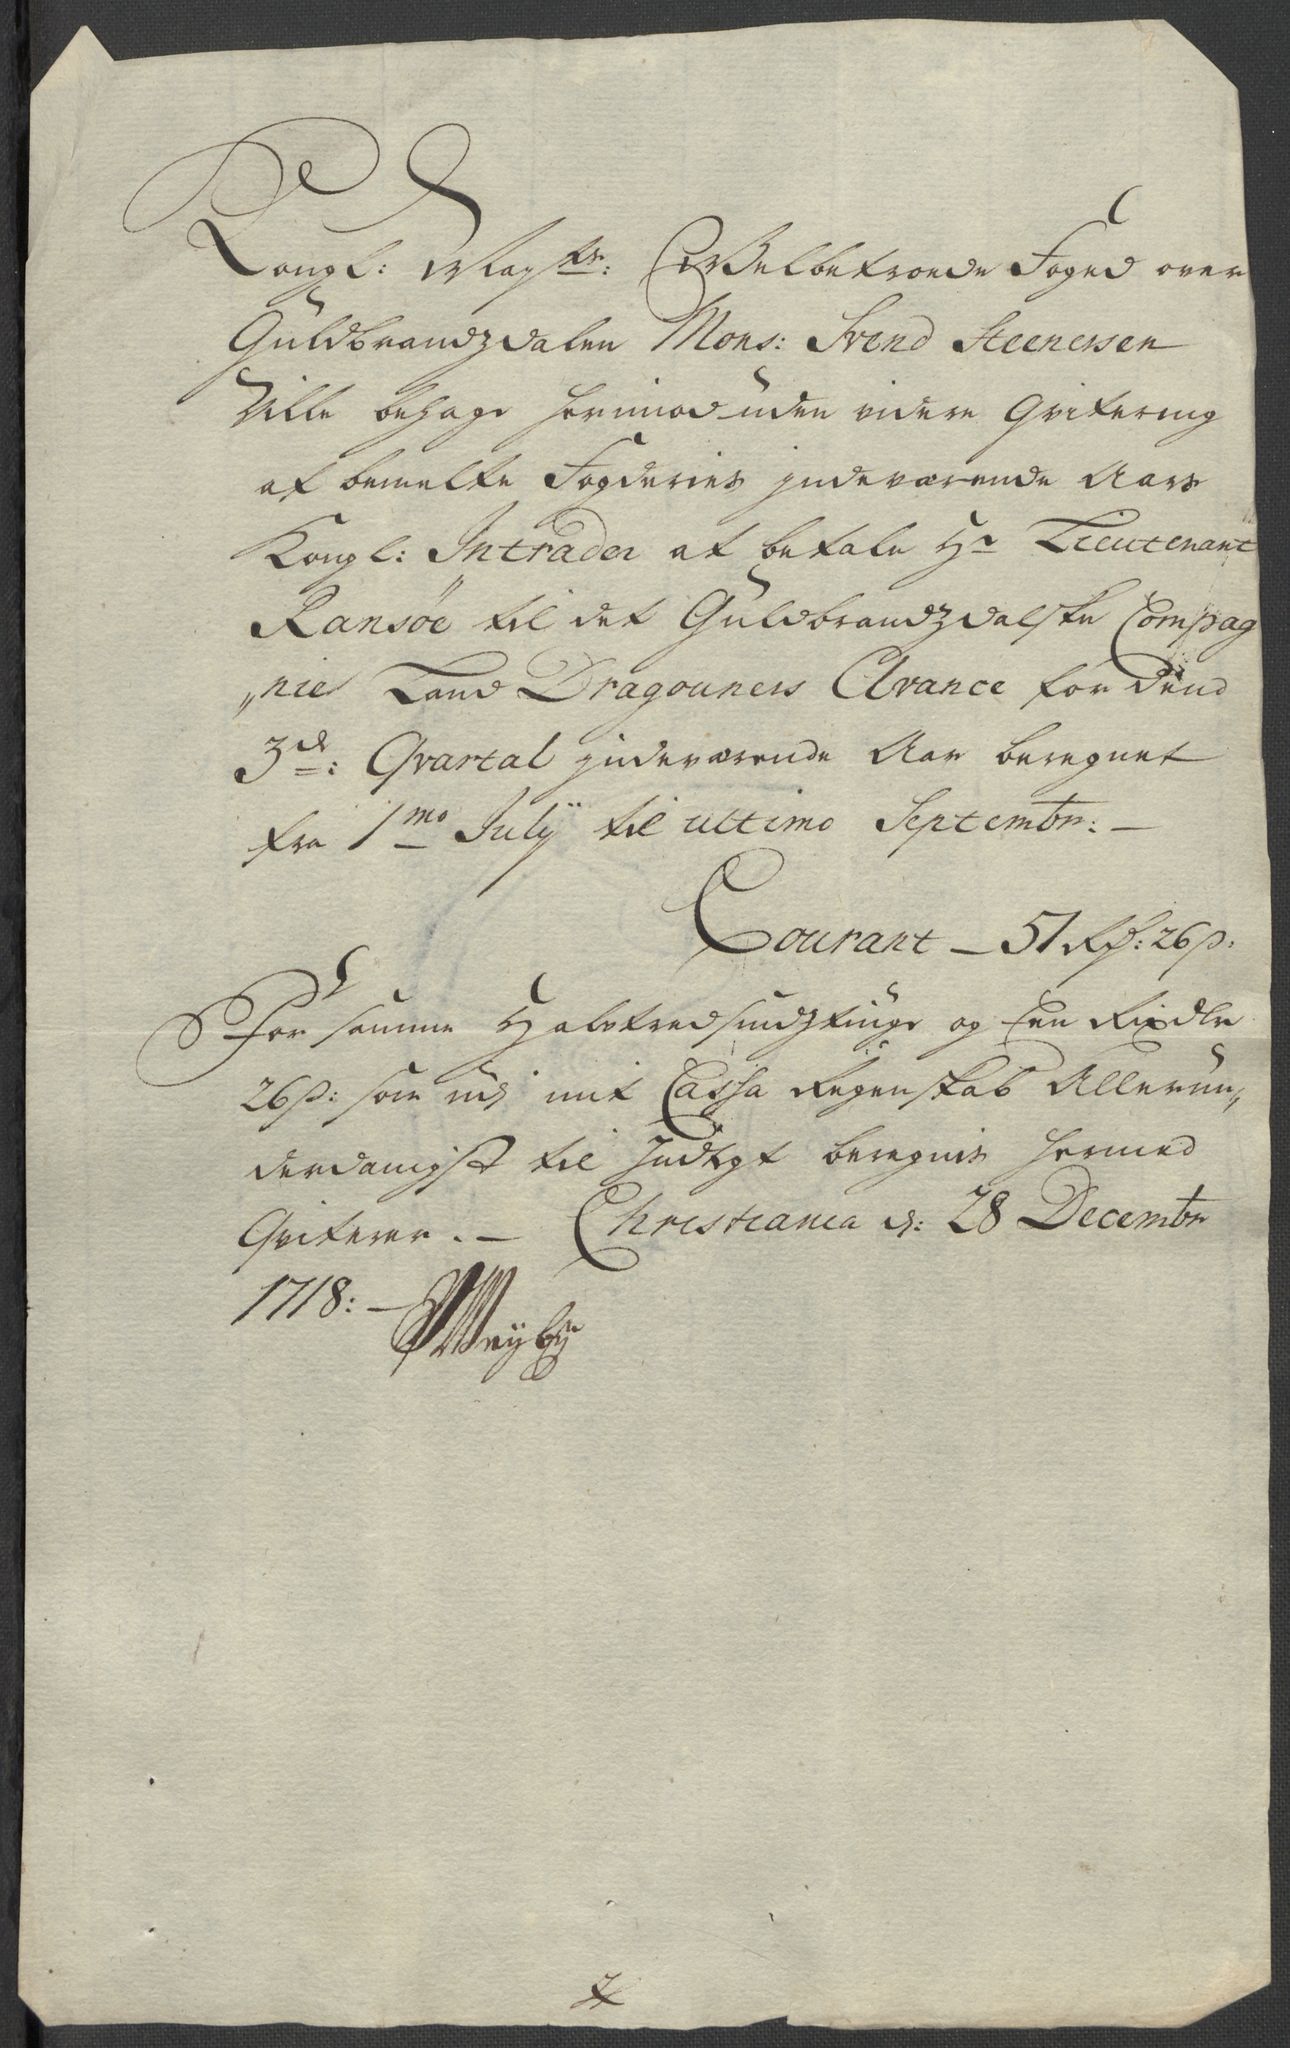 Kongl: Mayst: Velbetroede Foged over
Guldbrandzdalen Mons: Svend Steenersen
Ville behage herimod uden videre Qvitering
af bemelte Fogderies indeværende Aars
Kongl: Intrader at betale Hr Lieutenant
Ransöe til det Guldbrandzdalske Compag
„nie Land Dragouners Avance for dend
3de: Qvartal indeværende Aar beregnet
fra 1mo Julÿ til ultimo Septembr: –
Courant – 51 Rd: 26 s:
For samme Halvtredsindztiuge og Een Rixdlr
26 s: som udj mit Cassa Regenskab Allerun„
derdanigst til Indtgt beregnis hermed
Qviterer. – Christiania d: 28 Decembr
1718: –
Meyby